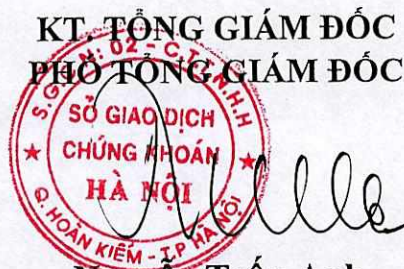 KT. TỔNG GIÁM ĐỐC
PHÓ TỔNG GIÁM ĐỐC
SỞ GIAO DỊCH
CHỨNG KHOÁN
HÀ NỘI
Q. HOÀN KIẾM - T.P HÀ NỘI